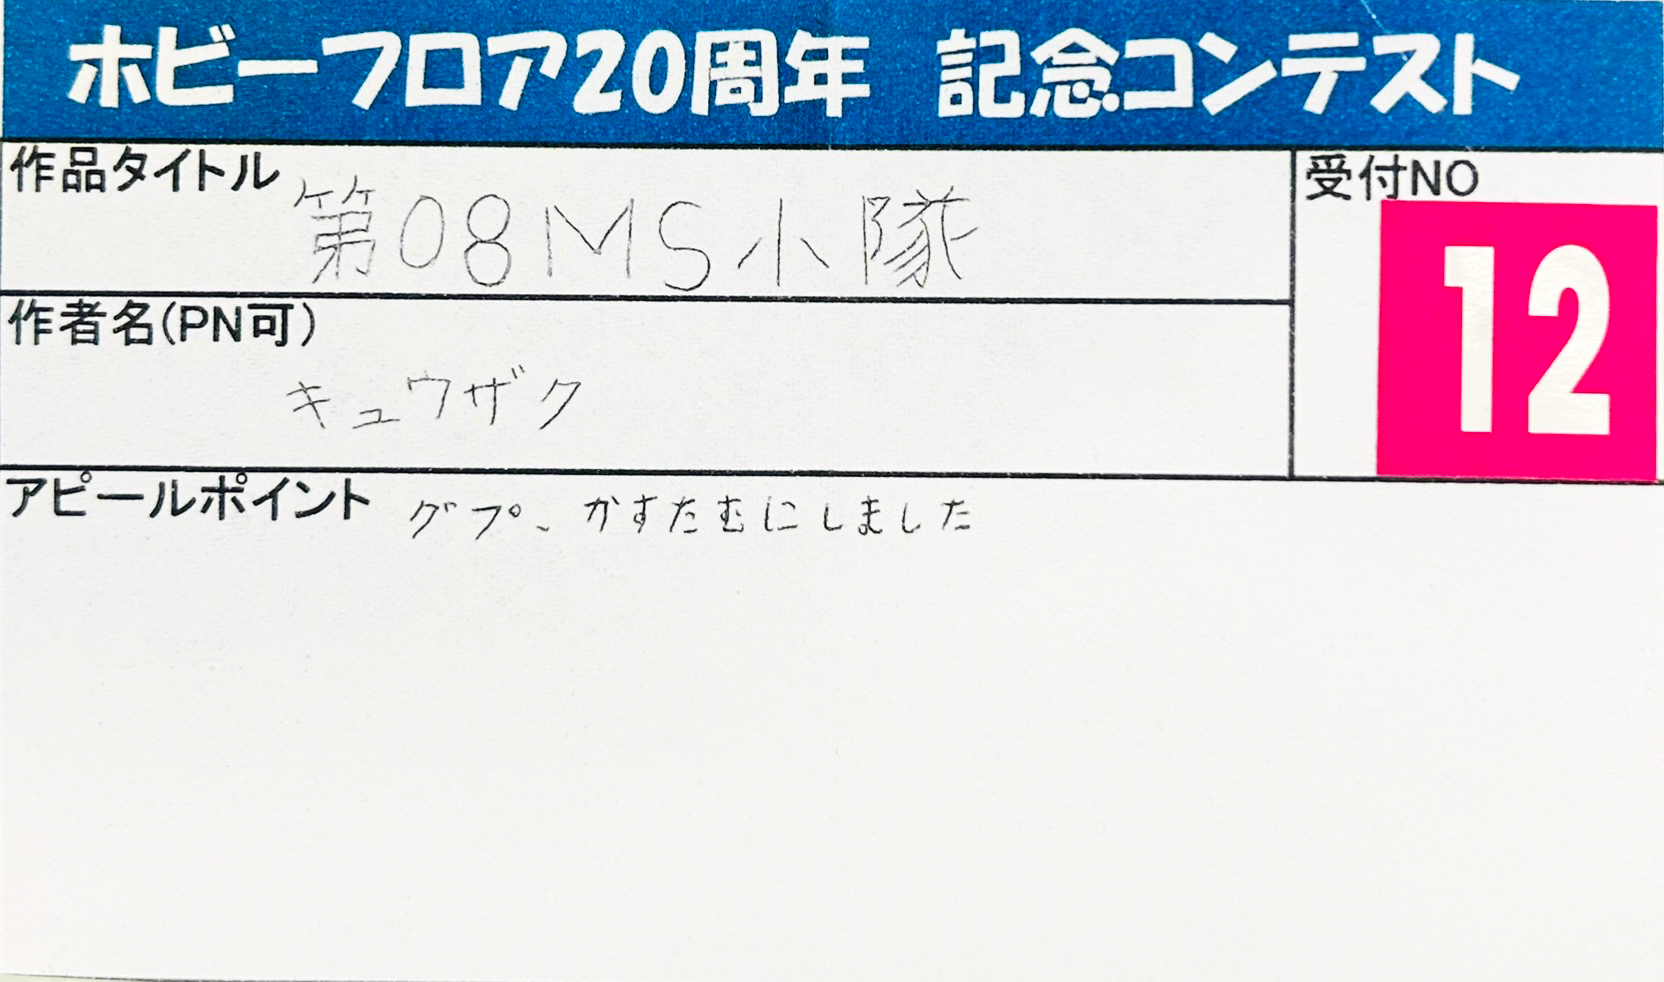 ホビーフロア20周年 記念コンテスト
作品タイトル
第08MS小隊
受付NO
12
作者名(PN可)
キュウザク
アピールポイント
グプ、かすたむにしました